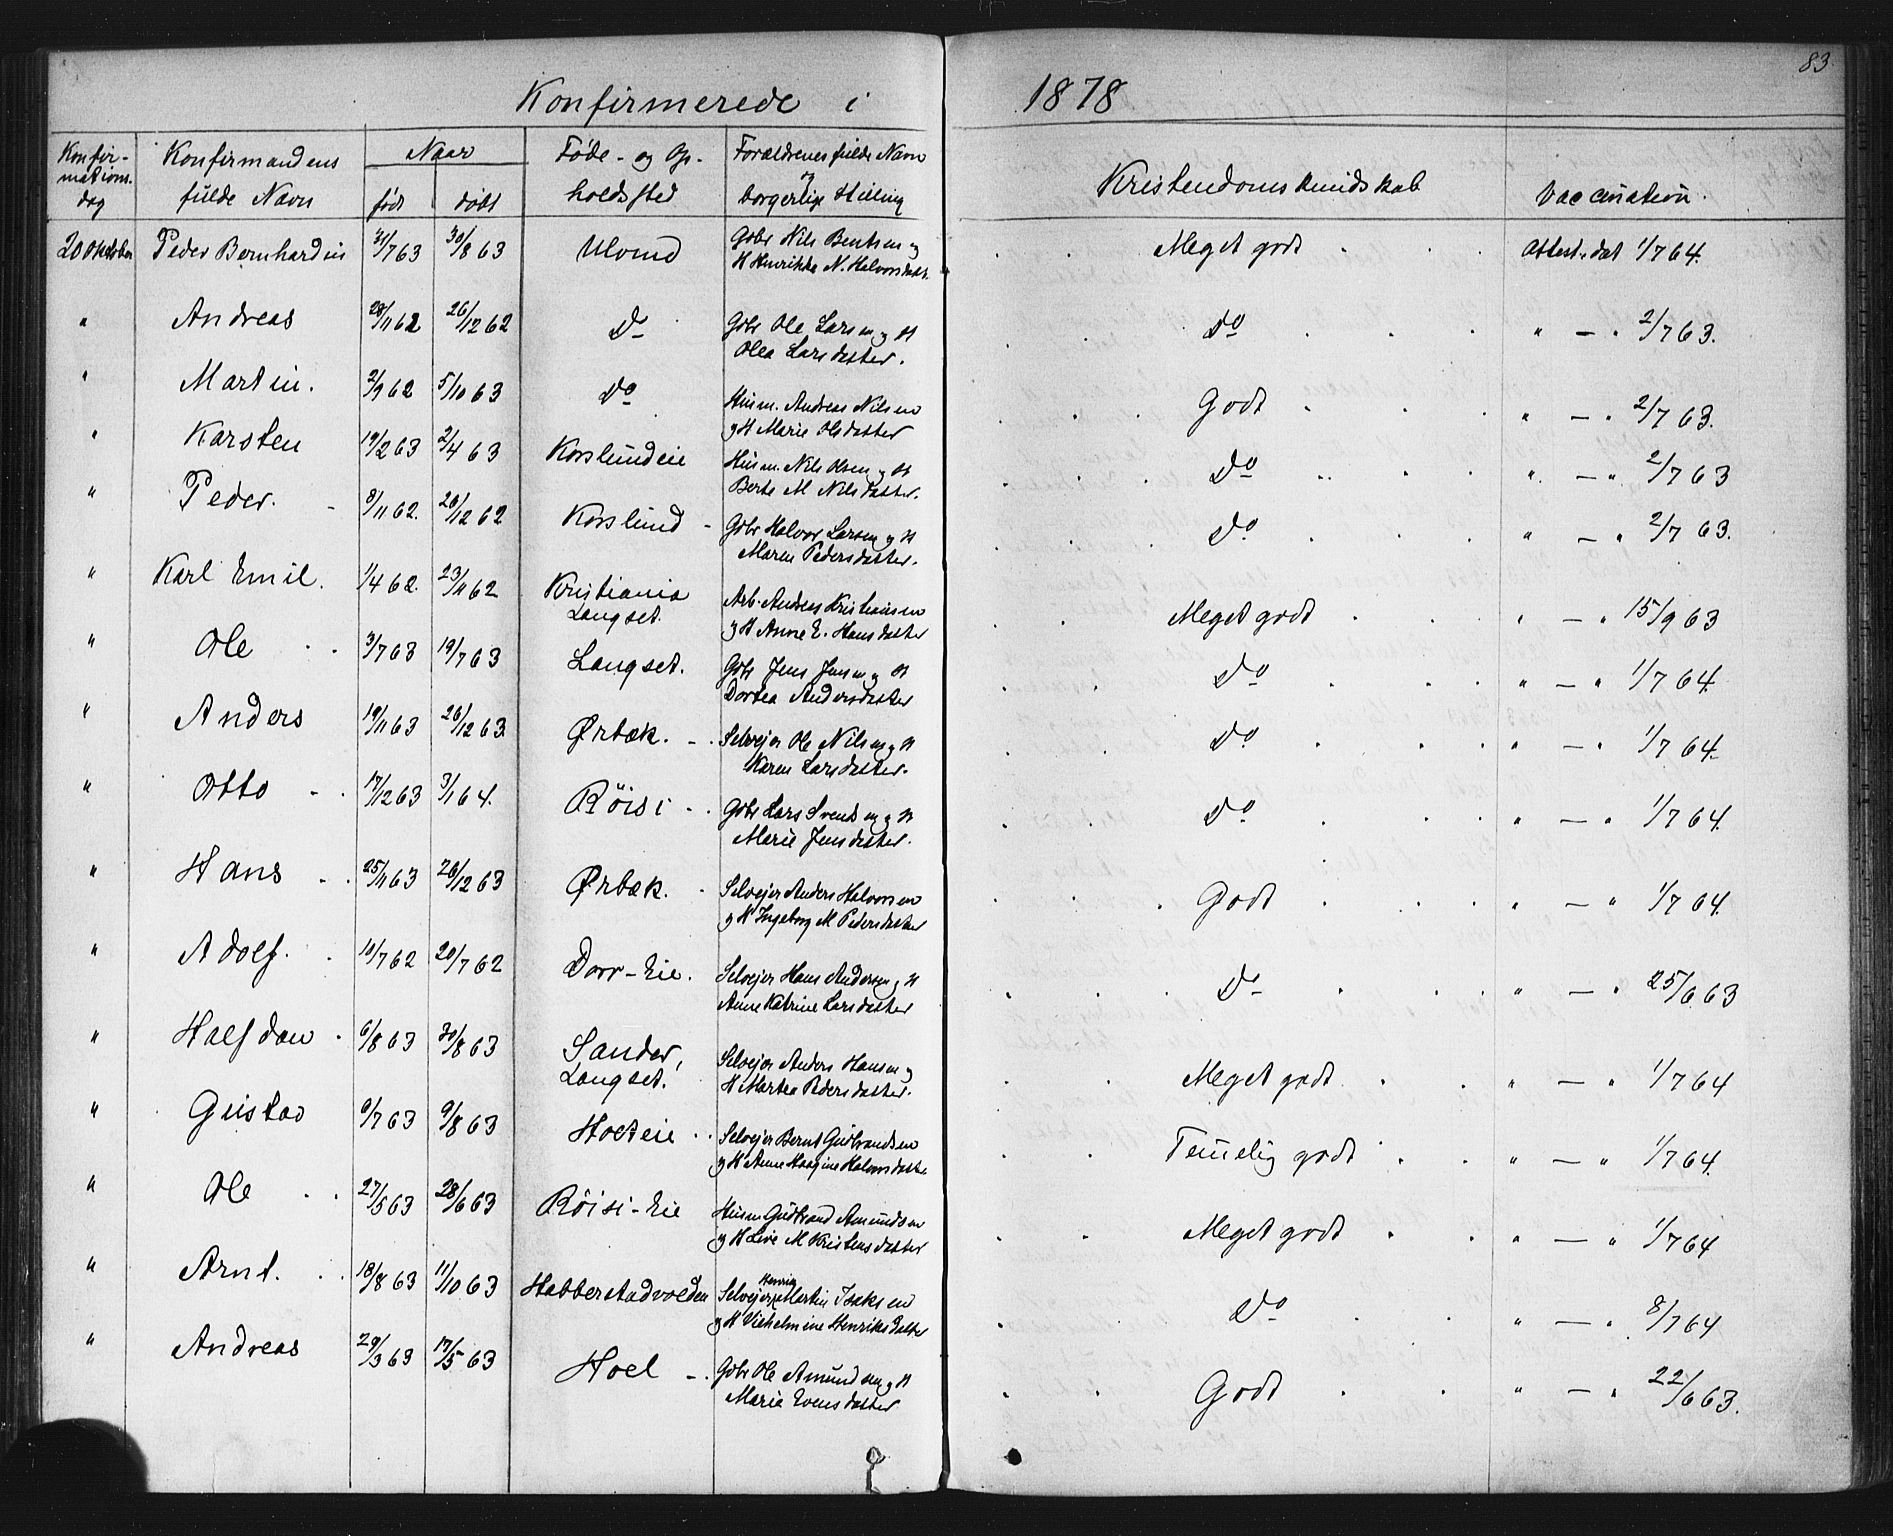 83
Konfirmerede i 1878
Konfir-
mations.
dag
Konfirmandens
fulde Navn
Naar
født
døbt
Føde- og Op-
holdssted
Forældrenes fulde Navn
og
borgerlige Stilling
Kristendomskundskab
Vaccination.
20 Oktober Peder Bernhardin 31/7 63 30/8 63 Ulvind Gdbr Nils Bentsen og Meget godt Attest. dat 1/7 64.
H Henrikke N. Halvorsdatt.
" Andreas 28/11 62 26/12 62 Do Gdbr Ole Larsen og H Do " — " 2/7 63.
Olea Larsdatter.
" Martin. 2/9 62 5/10 63 Do Husm. Andreas Nilsen Godt " — " 2/7 63.
og H Marie Olsdatter
" Karsten 19/2 63 2/4 63 Korslundeie Husm. Nils Olsen og H Do " — " 2/7 63
Berte M Nilsdatter.
" Peder. 8/11 62. 26/12 62 Korslund Gdbr Halvor Larsen og H Do " — " 2/7 63.
Maren Pedersdatter.
" Karl Emil. 1/4 62. 23/11 62 Kristiania Arb. Andreas Kristiansen Meget godt " — " 15/9 63
Langset. og H Anne E. Hansdatter
" Ole 3/7 63 19/7 63 Langset. Gdbr Jens Jensen og H Do " — " 1/7 64.
Dortea Andersdatter
" Anders 19/11 63 26/12 63 Ørbæk. Selvejer Ole Nilsen og H Do " — " 1/7 64.
Karen Larsdatter.
" Otto 17/12 63 3/1 64. Röisi Gdbr Lars Svendsen og H Do " — " 1/7 64.
Marie Jensdatter.
" Hans 25/11 63 26/12 63 Ørbæk. Selvejer Anders Halvorsen Godt " — " 1/7 64.
og H Ingeborg M Pedersdatter
" Adolf. 10/7 62 20/7 62 Dorr-Eie. Selvejer Hans Andersen og H Do " — " 25/6 63
Anne Katrine Larsdatter
" Halfdan 6/8 63 30/8 63 Sander, Selvejer Anders Hansen og Meget godt " — " 1/7 64
Langset. H Martea Pedersdatter.
" Gustav 6/7 63 9/8 63 Holteie Selvejer Bernt Gudbrandsen Temelig godt " — " 1/7 64.
og H Anne Haagine Halvorsdatte
" Ole 27/5 63 28/6 63 Röisi-Eie Husm Gudbrand Amundsen Meget godt " — " 1/7 64
og H Live M Kristensdatter
" Arnt. 18/8 63 11/10 63 Habberstadvolden Selvejer Henrik Martin Isaksen Do " — " 8/7 64
og H Vilhelmine Henriksdatter
" Andreas 29/3 63 17/5 63 Hoel Gdbr Ole Amundsen og H Godt " — " 22/6 63.
Marie Evensdatter